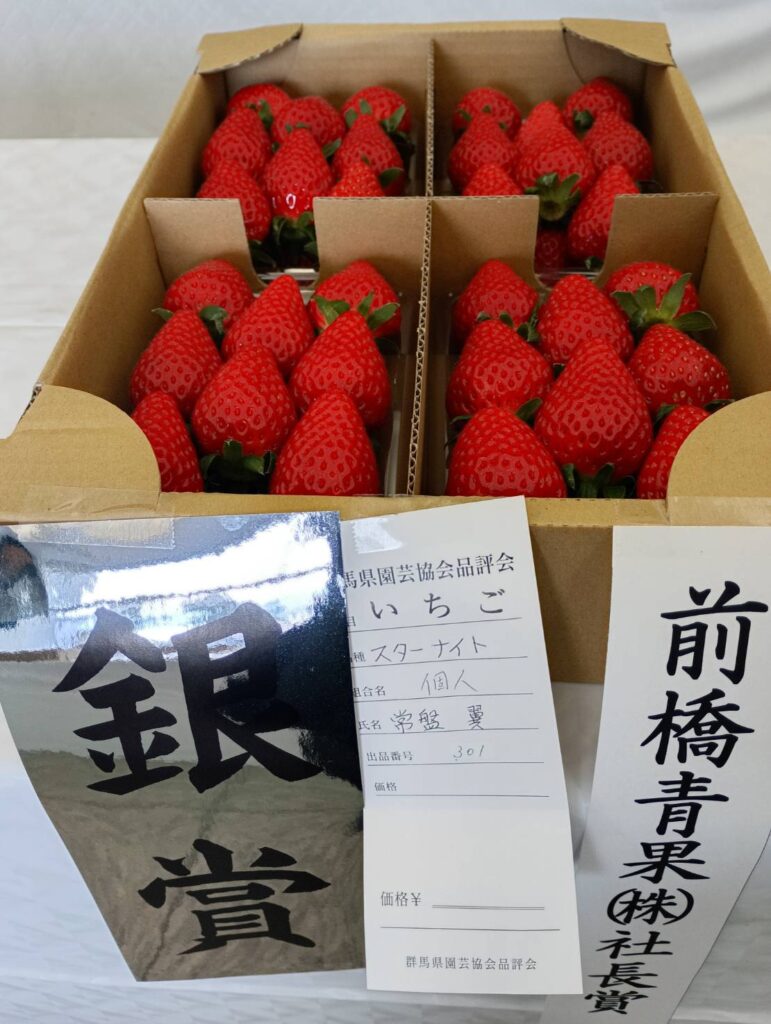 銀賞
馬県園芸協会品評会
目 いちご
種 スターナイト
組合名 個人
氏名 常盤 翼
出品番号 301
価格
価格¥
群馬県園芸協会品評会
前橋青果㈱社長賞